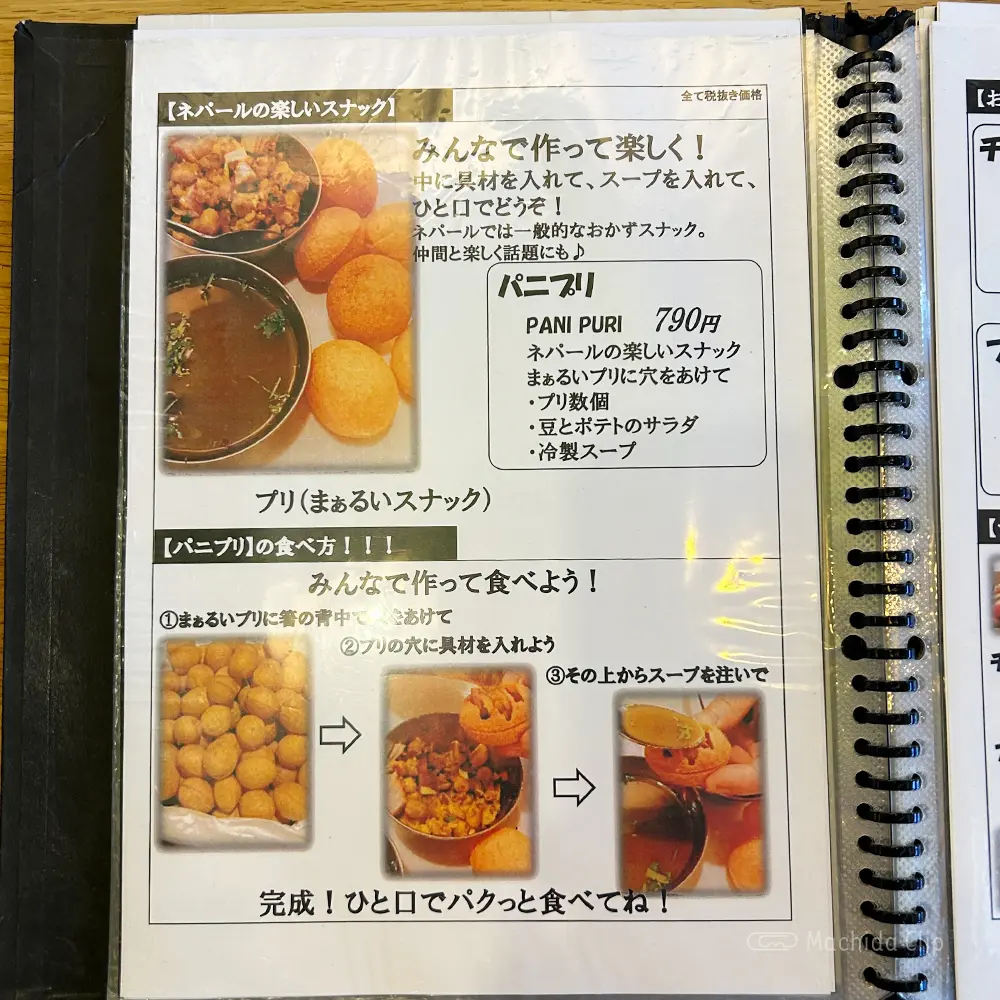 【ネパールの楽しいスナック】
全て税抜き価格
みんなで作って楽しく！
中に具材を入れて、スープを入れて、
ひと口でどうぞ！
ネパールでは一般的なおかずスナック。
仲間と楽しく話題にも♪
パニプリ
PANI PURI 790円
ネパールの楽しいスナック
まぁるいプリに穴をあけて
・プリ数個
・豆とポテトのサラダ
・冷製スープ
プリ（まぁるいスナック）
【パニプリ】の食べ方！！！
みんなで作って食べよう！
①まぁるいプリに箸の背中で をあけて
②プリの穴に具材を入れよう
③その上からスープを注いで
完成！ひと口でパクっと食べてね！
【お
チ
Machida Clip